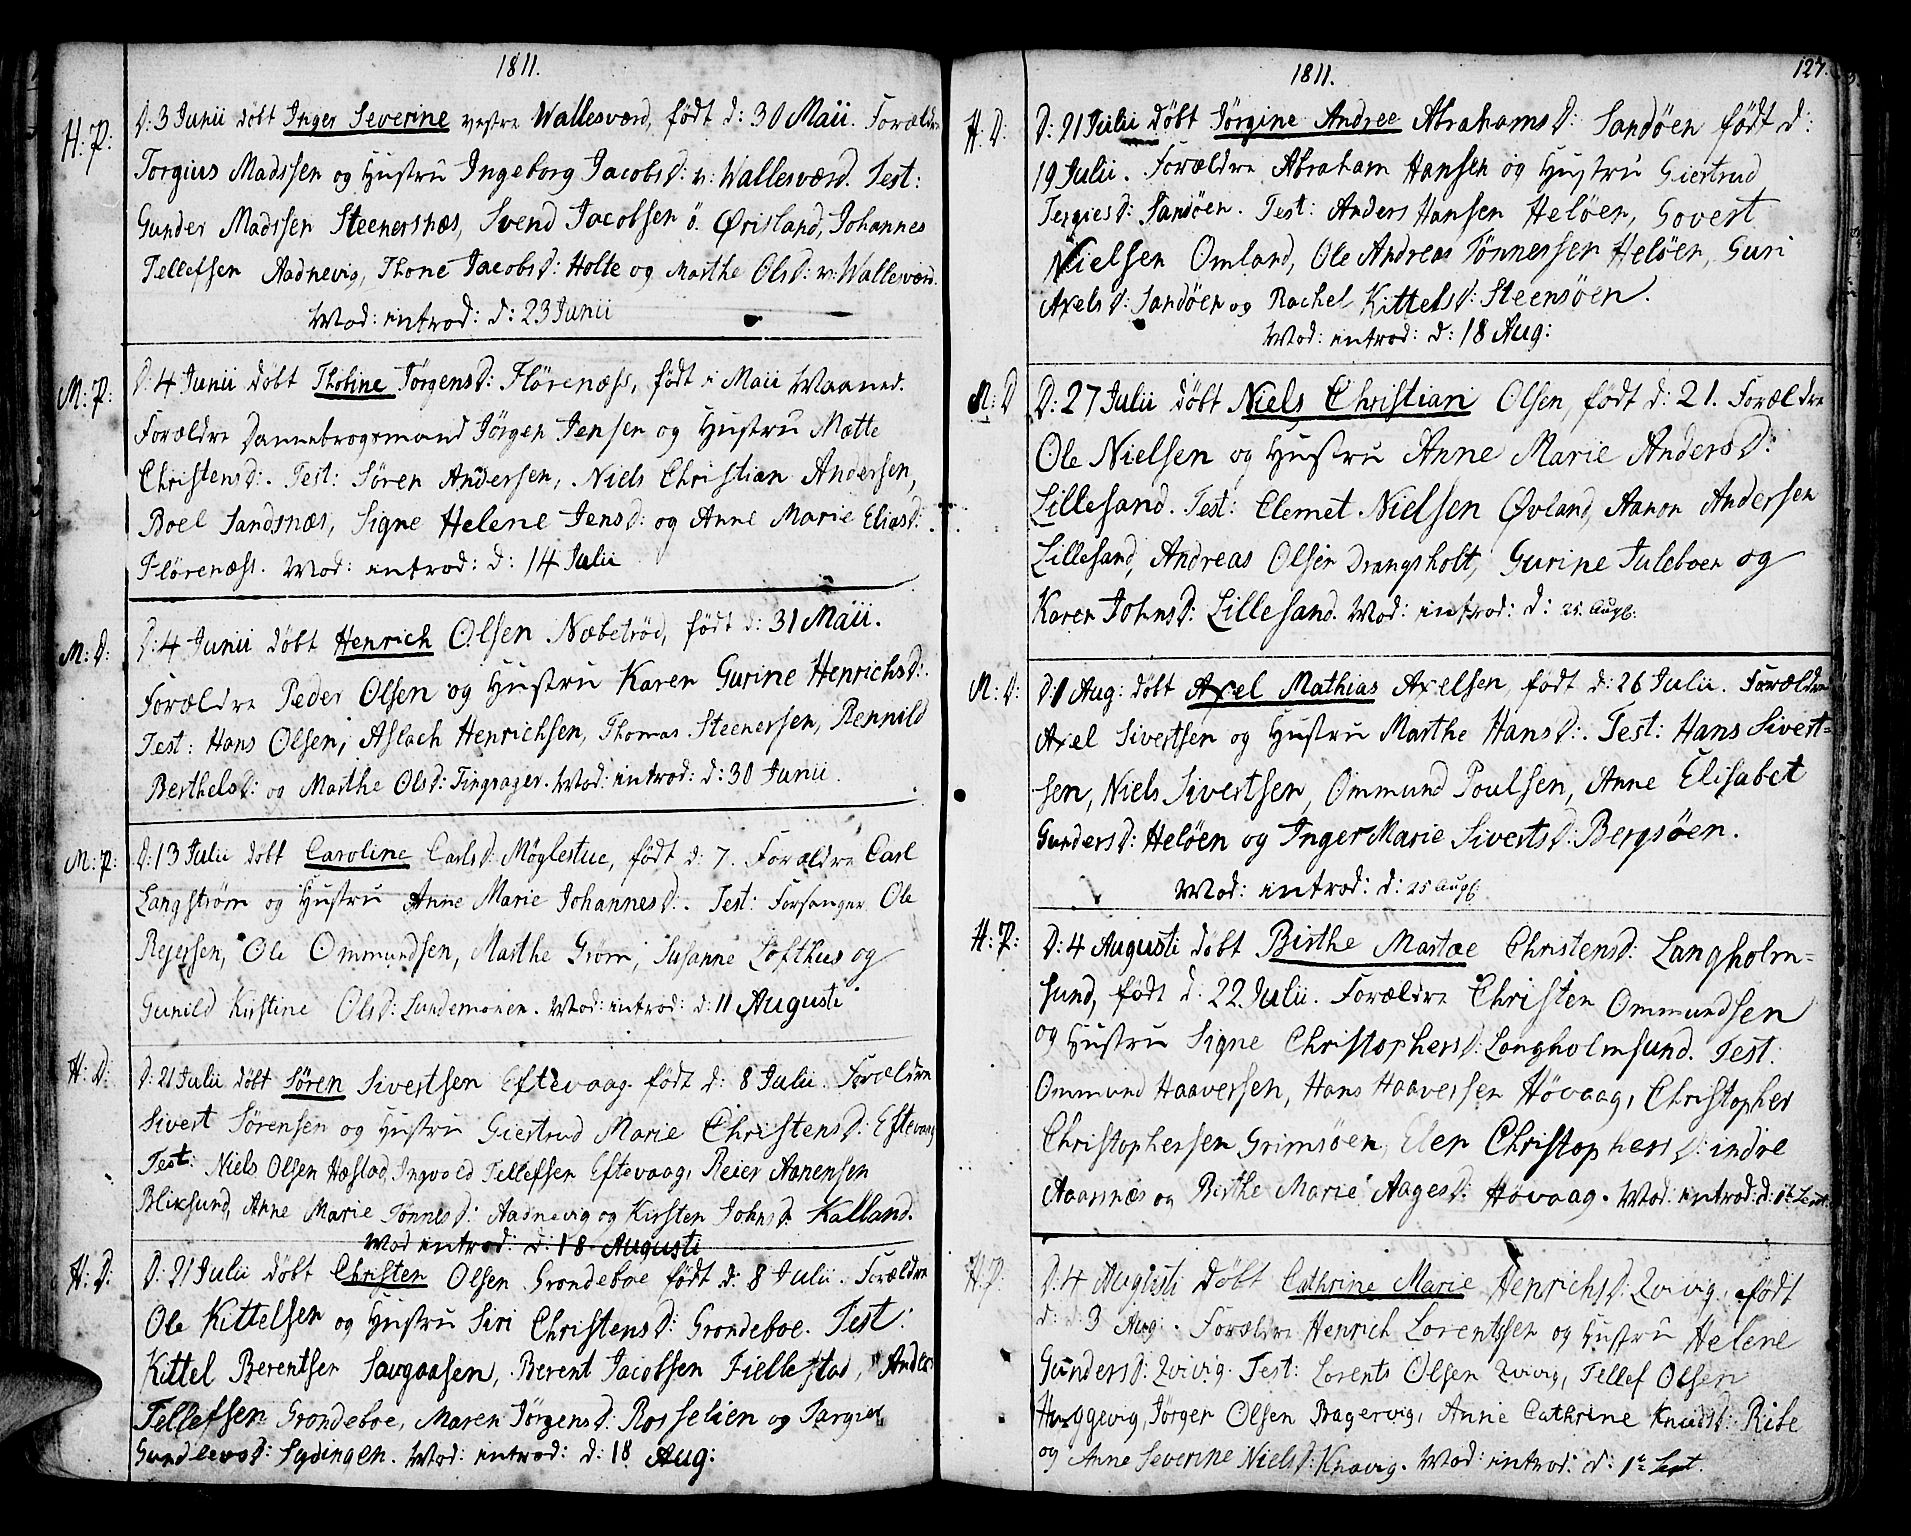 1811.
H: P: D: 3 Junii døbt Inger Severine vestre Wallesværd, født d: 30 Maii. Forældre
Torgius Madssen og Hustru Ingeborg Jacobsd: v: Wallesværd. Test:
Gunder Madssen Steenersnæs, Svend Jacobsen ö. Ørisland, Johannes
Tellefsen Aadnevig, Thone Jacobsd: Holte og Marthe Olsd: v: Wallesværd.
Mod: introd: d: 23 Junii
M: P: D: 4 Junii døbt Tholine Jørgensd: Flörenæss, født i Maii Maaned.
Forældre Dannebrogsmand Jörgen Jensen og Hustru Mætte
Christensd:. Test: Søren Andersen, Niels Christian Andersen,
Boel Sandsnæs, Signe Helene Jensd: og Anne Marie Eliasd:
Flörenæss. Mod: introd: d: 14 Julii
M: D: D: 4 Junii døbt Henrich Olsen Næbetröd, født d: 31 Maii.
Forældre Peder Olsen og Hustru Karen Gurine Henrichsd:.
Test: Hans Olsen, Aslach Henrichsen, Thomas Steenersen, Rennild
Berthelsd: og Marthe Olsd: Tingsager. Mod: introd: d: 30 Junii.
M: P: D: 13 Julii døbt Caroline Carlsd: Møglestue, født d: 7. Forældre Carl
Langström og Hustru Anne Marie Johannesd:. Test: Forsanger Ole
Rejersen, Ole Ommundsen, Marthe Gröm, Susanne Lofthus og
Gunild Kirstine Olsd: Sundemonen. Mod: introd: d: 11 Augusti
H: D: D: 21 Julii døbt Sören Sivertsen Eftevaag født d: 8 Julii. Forældre
Sivert Sörensen og Hustru Giertrud Marie Christensd: Eftevaag
Test: Niels Olsen Hæstad, Ingvold Tellefsen Eftevaag, Reier Aanensen
Blixsund, Anne Marie Tönnesd: Aadnevig og Kirsten Johnsd: Kalland.
Mod introd: d: 18 Augusti
H: D: D: 21 Julii døbt Christen Olsen Grondeboe født d: 8 Julii. Forældre
Ole Kittelsen og Hustru Siri Christensd: Grondeboe. Test:
Kittel Berentsen Saugaasen, Berent Jacobsen Fiellestad,
Tellefsen Grondeboe, Maren Jørgensd: Rosselien og Targier
Gundlevsd: Sydingen. Mod: introd: d: 18 Aug:
1811. 127.
H: D: D: 21 Julii døbt Jörgine Andree Abrahamsd: Sandöen født d:
19 Julii. Forældre Abraham Hansen og Hustru Giertrud
Tergiesd: Sandöen. Test: Anders Hansen Helöen, Govert
Nielsen Omland, Ole Andreas Tönnessen Helöen, Guri
Axelsd: Sandöen og Rachel Kittelsd: Steensöen.
Mod: introd: d: 18 Aug:
M: D D: 27 Julii døbt Niels Christian Olsen, født d: 21. Forældre
Ole Nielsen og Hustru Anne Marie Andersd:
Lillesand. Test: Clemet Nielsen Øvland, Aanon Andersen
Lillesand, Andreas Olsen Drangsholt, Gurine Juleboen og
Karen Johnsd: Lillesand. Mod: introd: d: 25. Aug:
M: D: D: 1 Aug: døbt Axel Mathias Axelsen, født d: 26 Julii. Forældre
Axel Sivertsen og Hustru Marthe Hansd:. Test: Hans Sivert=
sen, Niels Sivertsen, Ommund Poulsen, Anne Elisabet
Gundersd: Helöen og Inger Marie Sivertsd: Bergsöen.
Mod: introd: d: 25 Aug:
H: P: D: 4 Augusti døbt Birthe Martæ Christensd: Langholm=
sund, født d: 22 Julii. Forældre Christen Ommundsen
og Hustru Signe Christophersd: Langholmsund. Test:
Ommund Haaversen, Hans Haaversen Hövaag, Christopher
Christophersen Grimsöen, Elen Christophersd: indre
Aaarsnæs og Birthe Marie Aagesd: Hövaag. Mod: introd: d: Sept:
H: P: D: 4 Augusti døbt Cathrine Marie Henrichsd: Qvivig, født
d: 3 Aug. Forældre Henrich Lorentssen og Hustru Helene
Gundersd: Qvivig. Test: Lorents Olsen Qvivig, Tellef Olsen
Jørgen Olsen Bragervig, Anne Cathrine Knudsd: Ribe
og Anne Severine Nielsd: Knavig. Mod: introd: d: 1te Sept.